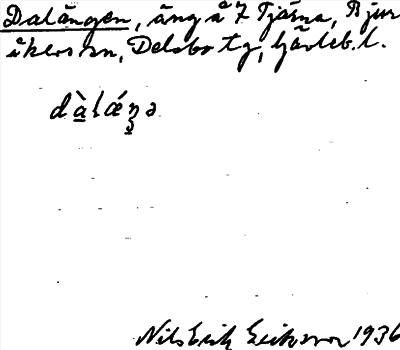 Dalängen, äng å 7 Tjärna, Bjur
åkers sn, Delsbo tg, Gävleb. l.
dàlǽŋə
Nils Erik Eriksson 1936